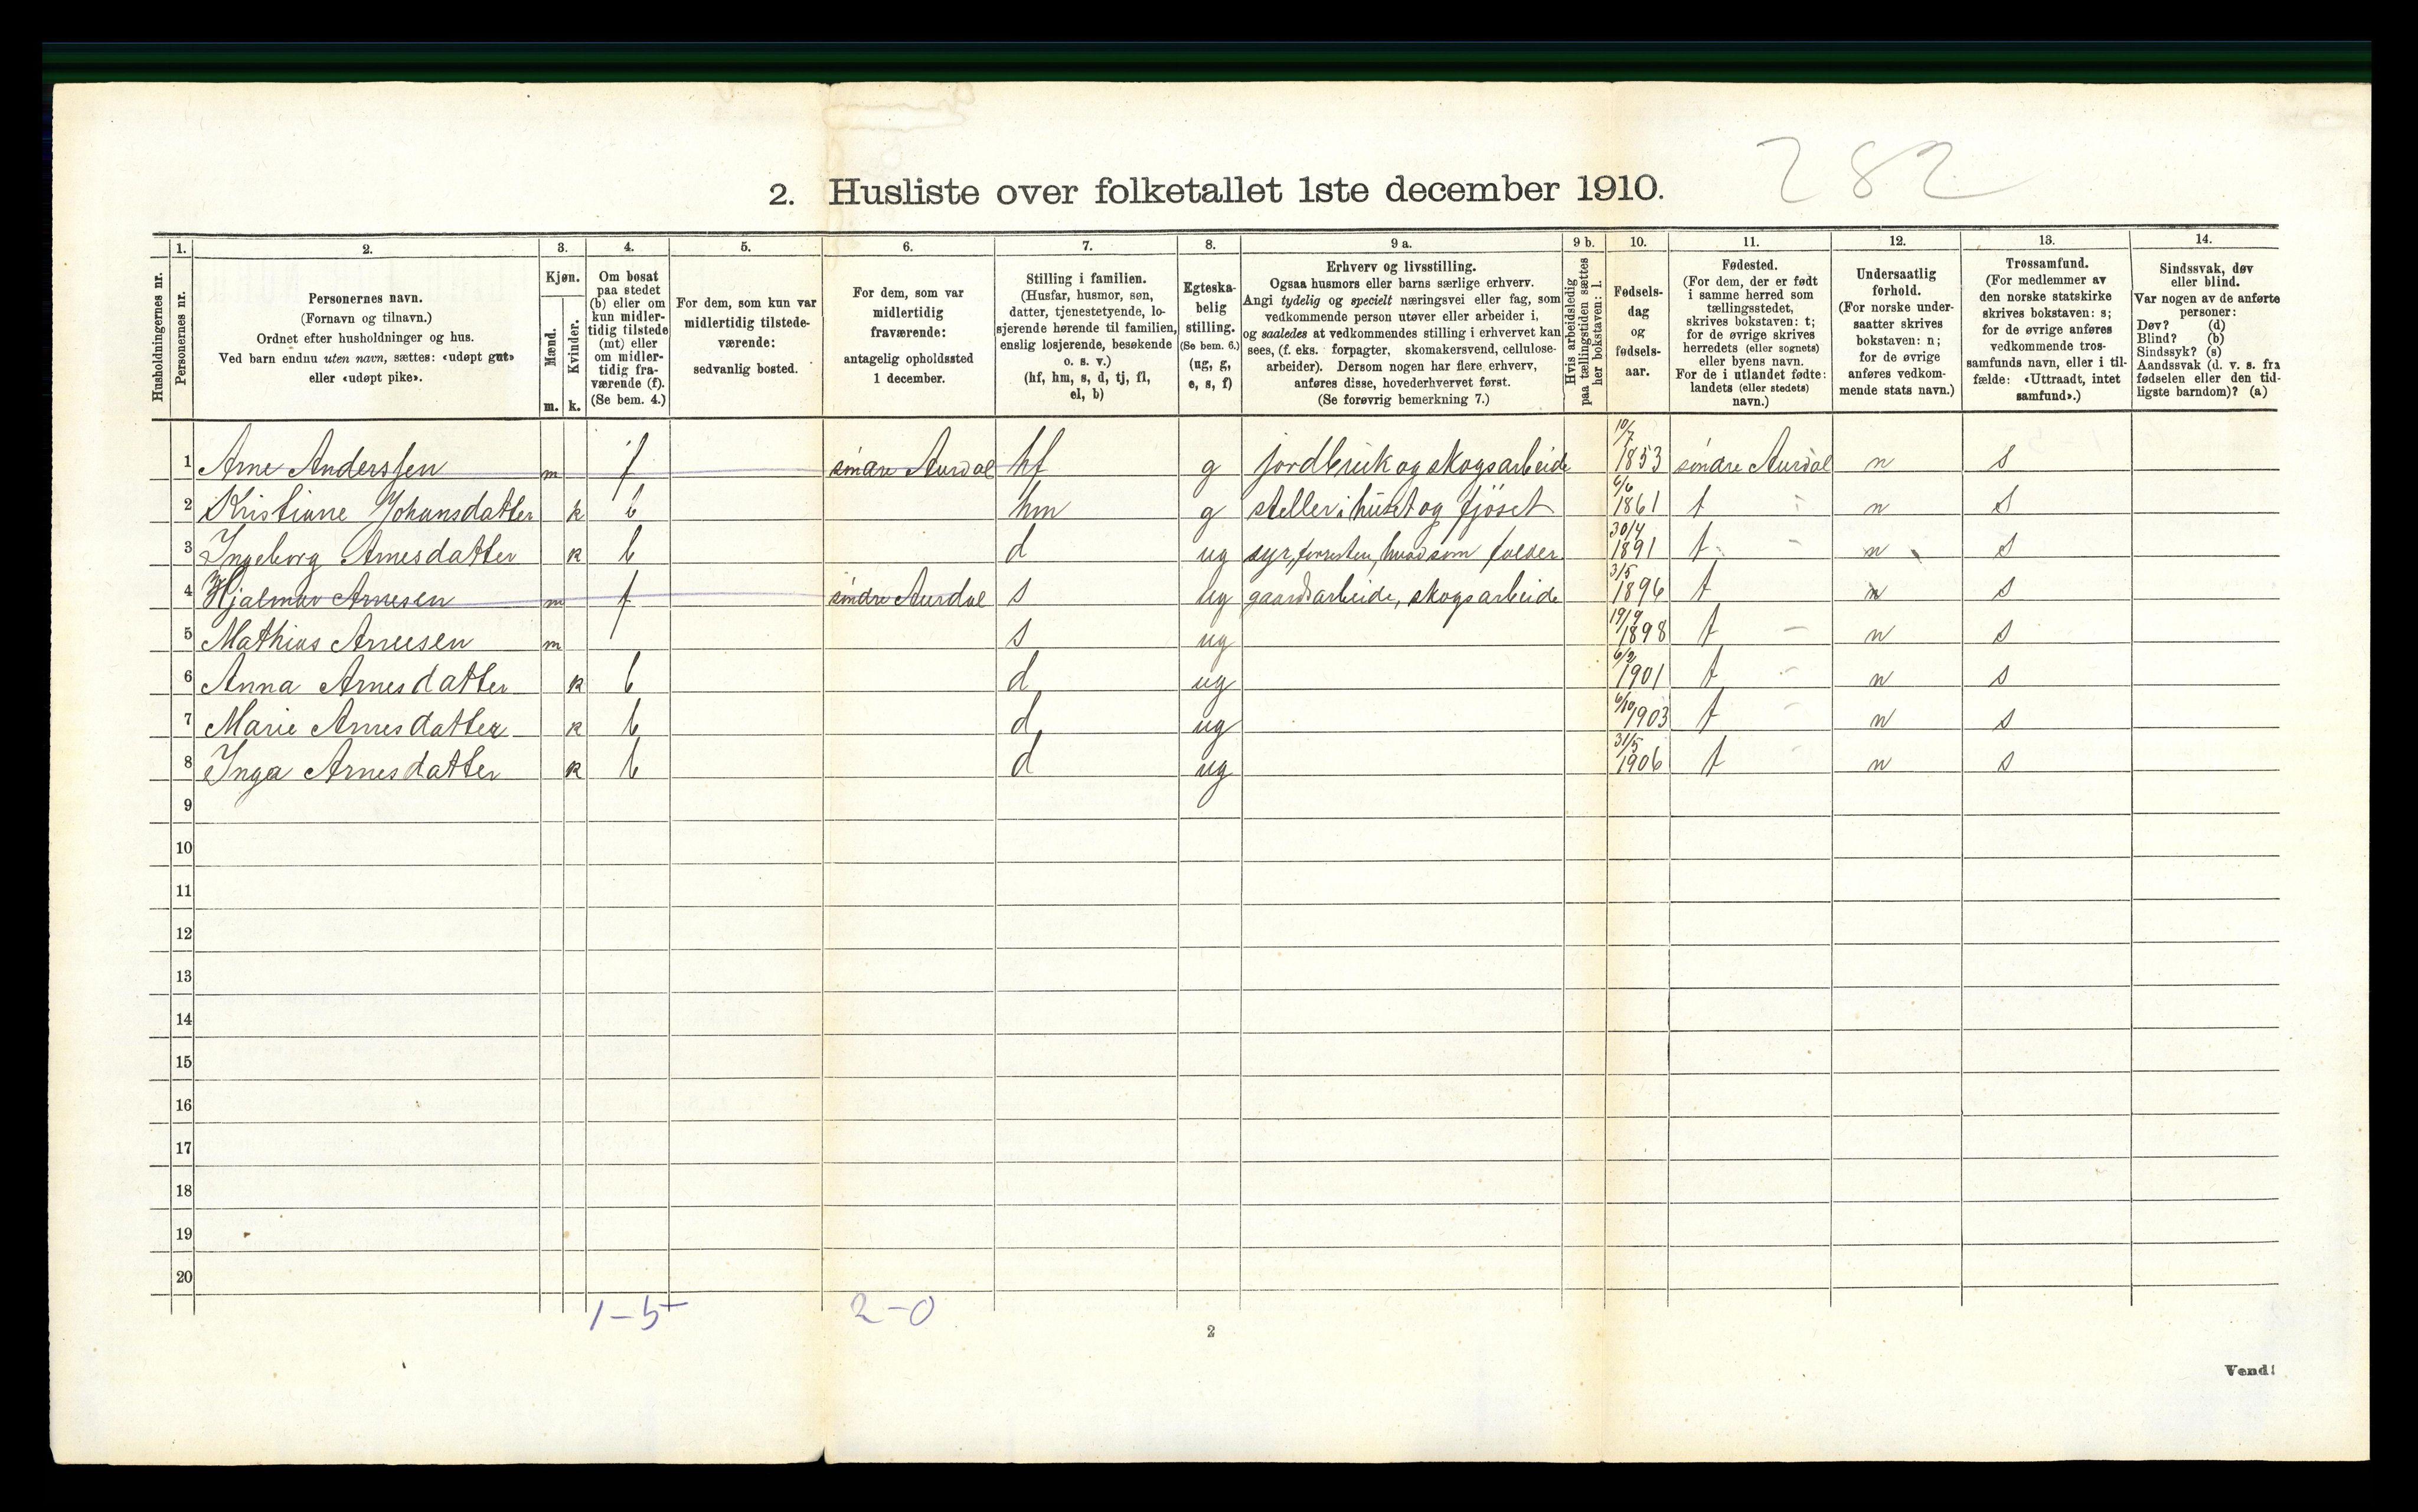 282
2. Husliste over folketallet 1ste december 1910.
Husholdningernes nr.
1. Personernes nr.
2. Personernes navn.
(Fornavn og tilnavn.)
Ordnet efter husholdninger og hus.
Ved barn endnu uten navn, sættes: «udøpt gut»
eller «udøpt pike».
3. Kjøn.
Mænd. Kvinder.
m. k.
4. Om bosat
paa stedet
(b) eller om
kun midler-
tidig tilstede
(mt) eller
om midler-
tidig fra-
værende (f).
(Se bem. 4.)
5. For dem, som kun var
midlertidig tilstede-
værende:
sedvanlig bosted.
6. For dem, som var
midlertidig
fraværende:
antagelig opholdssted
1 december.
7. Stilling i familien.
(Husfar, husmor, søn,
datter, tjenestetyende, lo-
sjerende hørende til familien,
enslig losjerende, besøkende
o. s. v.)
(hf, hm, s, d, tj, fl,
el, b)
8. Egteska-
belig
stilling.
(Se bem. 6.)
(ug, g,
e, s, f)
9 a. Erhverv og livsstilling.
Ogsaa husmors eller barns særlige erhverv.
Angi tydelig og specielt næringsvei eller fag, som
vedkommende person utøver eller arbeider i,
og saaledes at vedkommendes stilling i erhvervet kan
sees, (f. eks. forpagter, skomakersvend, cellulose-
arbeider). Dersom nogen har flere erhverv,
anføres disse, hovederhvervet først.
(Se forøvrig bemerkning 7.)
9 b. Hvis arbeidsledig
paa tællingstiden sættes
her bokstaven: l.
10. Fødsels-
dag
og
fødsels-
aar.
11. Fødested.
(For dem, der er født
i samme herred som
tællingsstedet,
skrives bokstaven: t;
for de øvrige skrives
herredets (eller sognets)
eller byens navn.
For de i utlandet fødte:
landets (eller stedets)
navn.)
12. Undersaatlig
forhold.
(For norske under-
saatter skrives
bokstaven: n;
for de øvrige
anføres vedkom-
mende stats navn.)
13. Trossamfund.
(For medlemmer av
den norske statskirke
skrives bokstaven: s;
for de øvrige anføres
vedkommende tros-
samfunds navn, eller i til-
fælde: «Uttraadt, intet
samfund».)
14. Sindssvak, døv
eller blind.
Var nogen av de anførte
personer:
Døv? (d)
Blind? (b)
Sindssyk? (s)
Aandssvak (d. v. s. fra
fødselen eller den tid-
ligste barndom)? (a)
1 Arne Anderssen m f søndre Aurdal hf g jordbruk og skogsarbeide 10/7 1853 søndre Aurdal n s
2 Kristiane Johansdatter k b hm g steller i huset og fjöset 6/6 1861 t n s
3 Ingeborg Arnesdatter k b d ug syr, forresten, hvad som falder 30/4 1891 t n s
4 Hjalmar Arnesen m f søndre Aurdal s ug gaardsarbeide, skogsarbeide 3/5 1896 t n s
5 Mathias Arnesen m s ug 19/9 1898 t n s
6 Anna Arnesdatter k b d ug 6/2 1901 t n s
7 Marie Arnesdatter k b d ug 6/10 1903 t n s
8 Inga Arnesdatter k b d ug 31/5 1906 t n s
9
10
11
12
13
14
15
16
17
18
19
20
1-5 2-0
2
Vend!